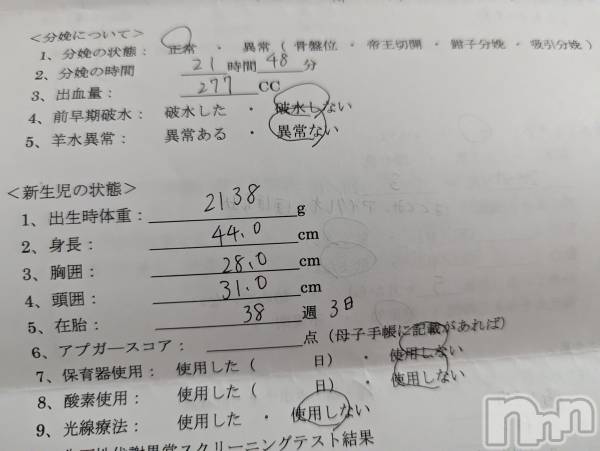 ＜分娩について＞
1、分娩の状態： 正常 ・ 異常（ 骨盤位 ・ 帝王切開 ・ 鉗子分娩 ・ 吸引分娩 ）
2、分娩の時間 21 時間 48 分
3、出血量： 277 CC
4、前早期破水： 破水した ・ 破水しない
5、羊水異常： 異常ある ・ 異常ない
＜新生児の状態＞
1、出生時体重： 2138 g
2、身長： 44.0 cm
3、胸囲： 28.0 cm
4、頭囲： 31.0 cm
5、在胎： 38 週 3日
6、アプガースコア： 点（母子手帳に記載があれば）
7、保育器使用： 使用した（ 日） ・ 使用しない
8、酸素使用： 使用した（ 日） ・ 使用しない
9、光線療法： 使用した ・ 使用しない
代謝異常スクリーニングテスト結果